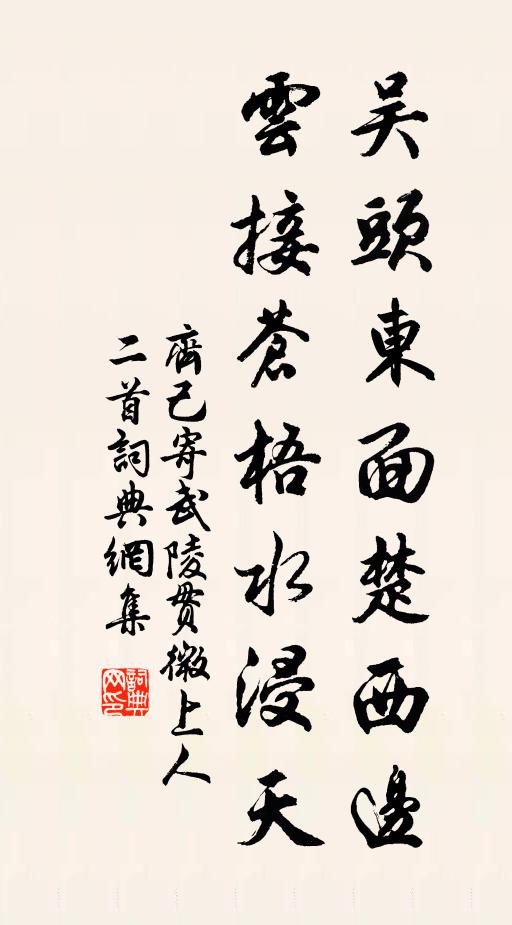 吴頭東面楚西邊
雲接蒼梧水浸天
齊己寄武陵貫微上人
二首詞典網集
詞典
网印